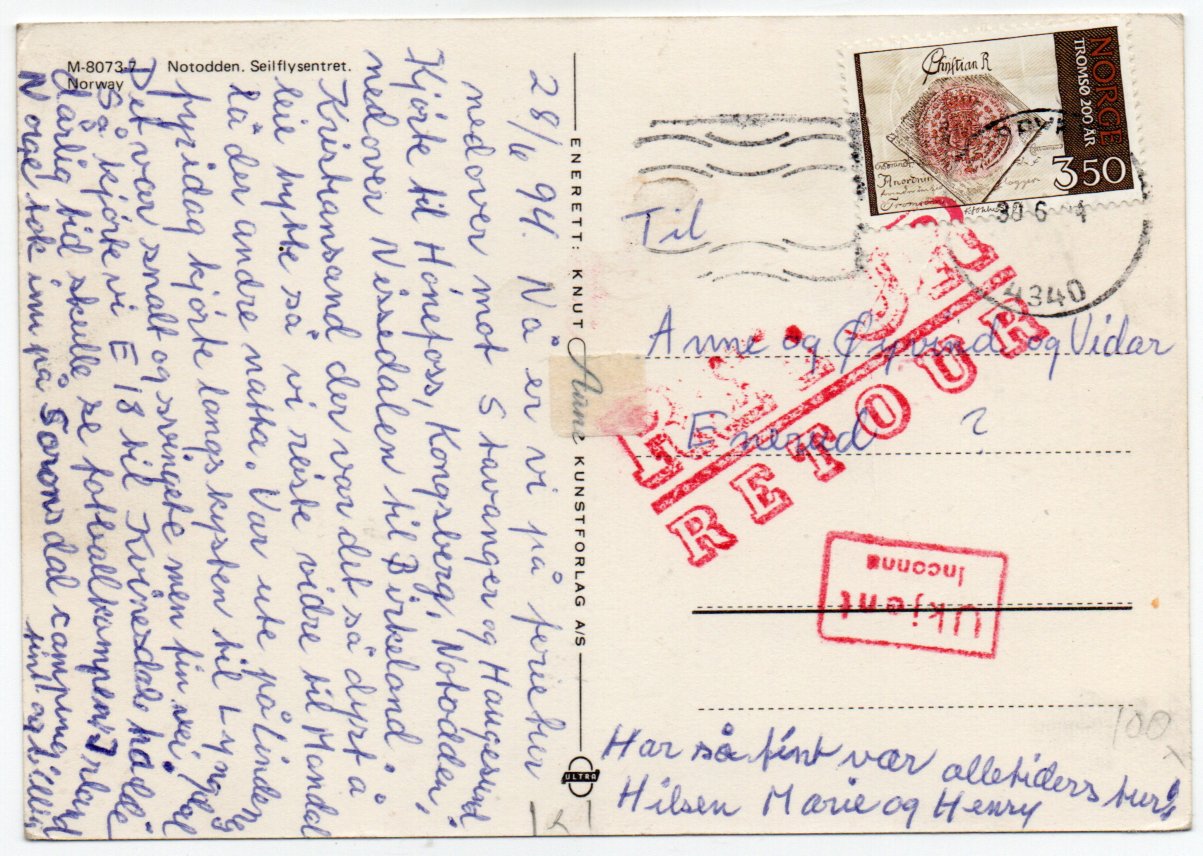 M-8073-7 Notodden. Seilflysentret.
Norway
28/6 94. Nå er vi på ferietur
nedover mot Stavanger og Haugesund
Kjørte til Hønefoss, Kongsberg, Notodden,
nedover Nissedalen til Birkeland
Kristiansand der var det så dyrt å
leie hytte så vi reiste vidre til Mandal
lå der andre natta. Var ute på Lindenes
fyr idag kjørte langs kysten til Lyngdal
Det var smalt og svingete men fin vei
Så kjørte vi E 18 til Kvinesdal holdt
dårlig tid skulle se fotballkampen Irland
Norge tok inn på Saronsdal camping
fint og billig
ENERETT: KNUT Aune KUNSTFORLAG A/S
ULTRA
Christian R
NORGE
TROMSØ 200 ÅR
3,50
30 6
4340
Til
Anne og Øyvind og Vidar
Enerud ?
RETUR
RETOUR
Ukjent
Inconnu
100
Har så fint vær alletiders tur
Hilsen Marie og Henry